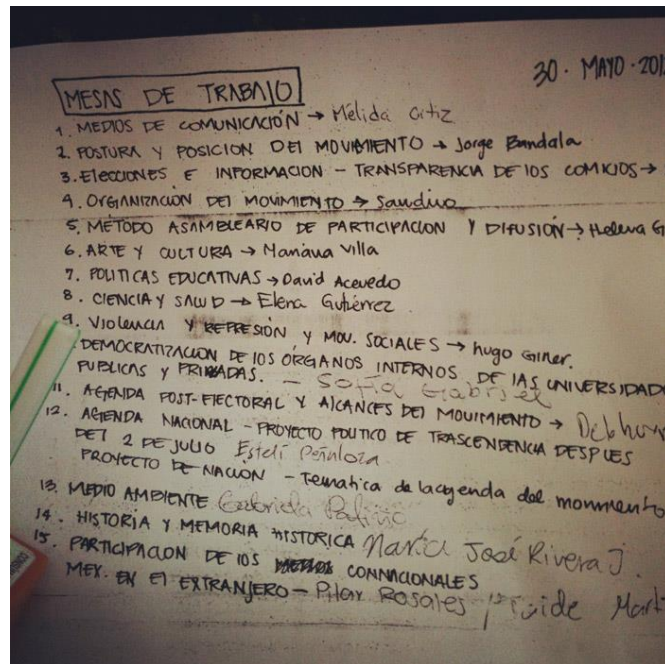 30. MAYO. 201
MESAS DE TRABAJO
1. MEDIOS DE COMUNICACIÓN → Mélida Ortiz
2. POSTURA Y POSICION DEL MOVIMIENTO → Jorge Bandala
3. ELECCIONES E INFORMACION - TRANSPARENCIA DE LOS COMICIOS →
4. ORGANIZACION DEL MOVIMIENTO → Sandino
5. MÉTODO ASAMBLEARIO DE PARTICIPACION Y DIFUSIÓN → Helena G
6. ARTE Y CULTURA → Mariana Villa
7. POLITICAS EDUCATIVAS → David Acevedo
8. CIENCIA Y SALUD → Elena Gutiérrez
9. VIOLENCIA Y REPRESIÓN Y MOV. SOCIALES → Hugo Giner.
DEMOCRATIZACION DE LOS ÓRGANOS INTERNOS DE LAS UNIVERSIDAD
PUBLICAS Y PRIVADAS. - Sofía Gabriel
11. AGENDA POST-ELECTORAL Y ALCANCES DEL MOVIMIENTO →
12. AGENDA NACIONAL - PROYECTO POLITICO DE TRASCENDENCIA DESPUES
DEL 2 DE JULIO Estelí Peñaloza
PROYECTO DE NACION - Tematica de la agenda del movimiento
13. MEDIO AMBIENTE Gabriela
14. HISTORIA Y MEMORIA HISTORICA María José Rivera J.
15. PARTICIPACION DE LOS CONNACIONALES
MEX. EN EL EXTRANJERO - Pilar Rosales